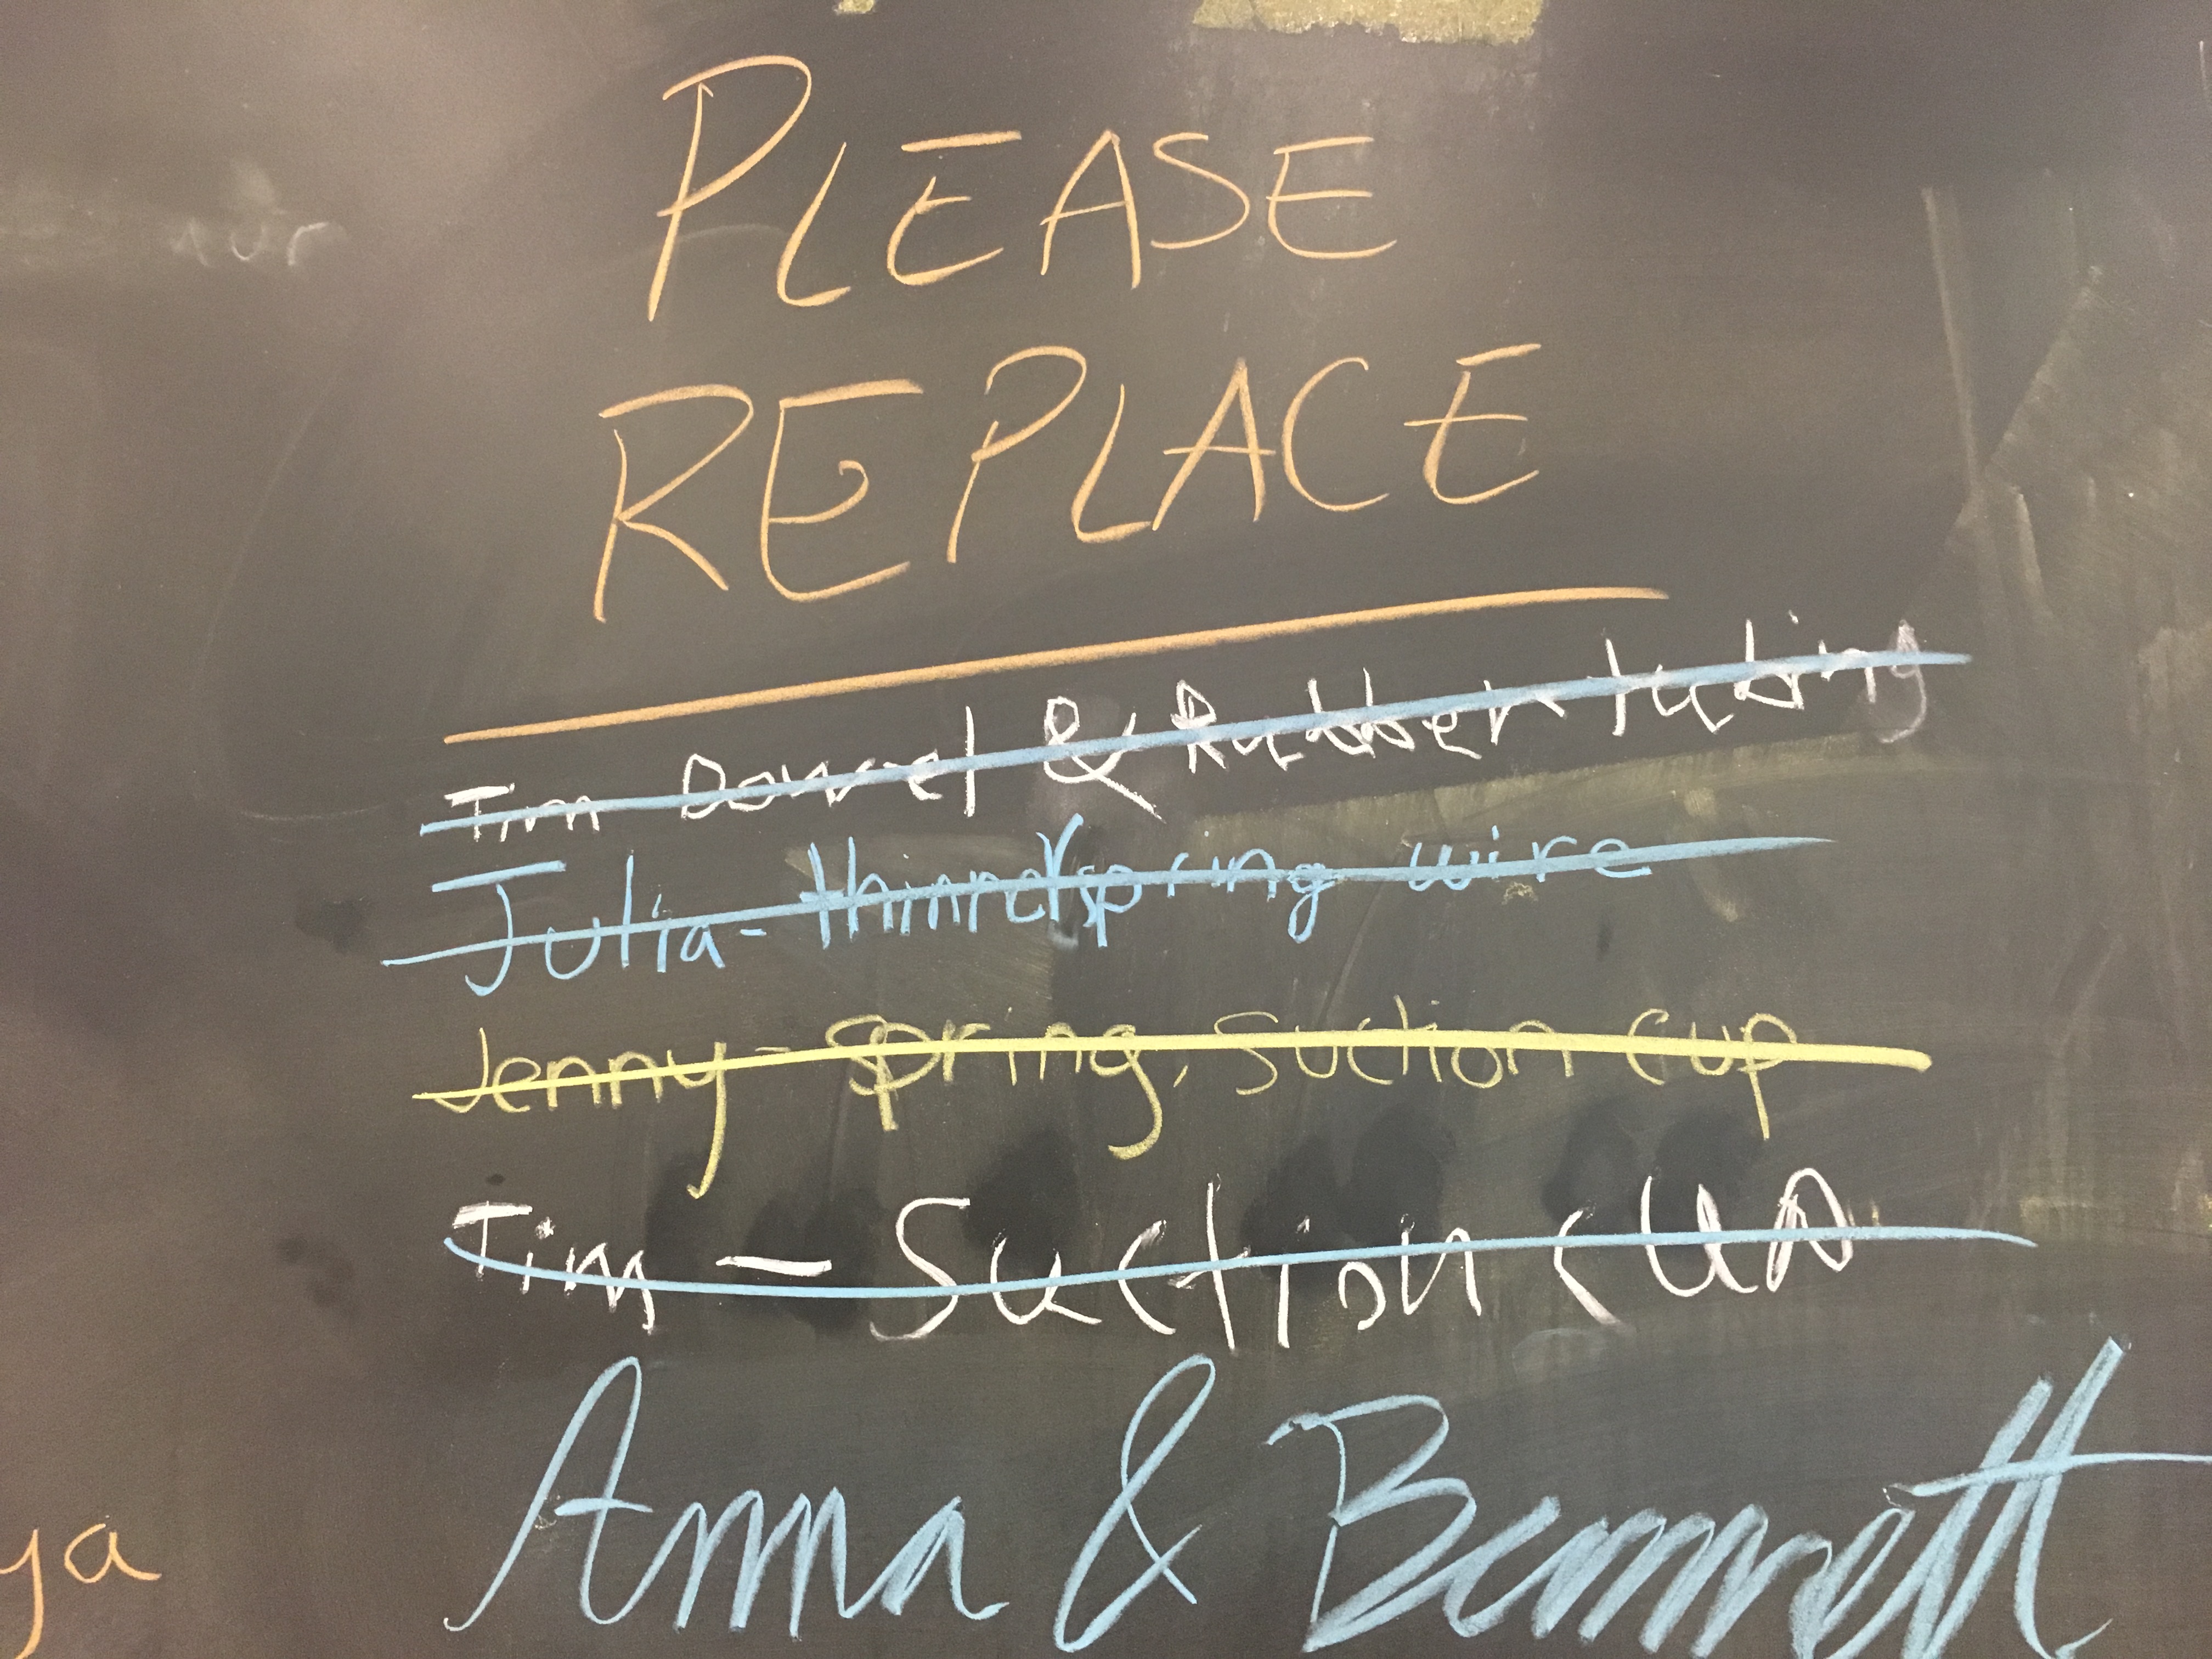 PLEASE
REPLACE
Tim Dowel & Rubber tubing
Julia - spring wire
Jenny - spring, suction cup
Tim - Suction cup
Anna & Bennett
ya